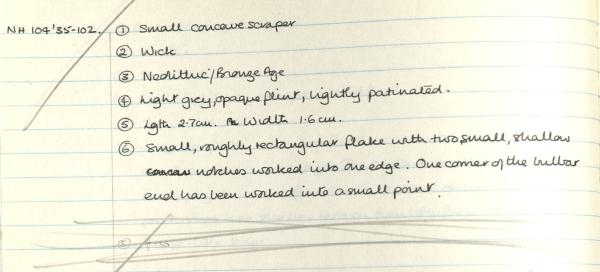 NH 104'35-102. ① Small concave scraper
② Wick
③ Neolithic/Bronze Age
④ Light grey, opaque flint, lightly patinated.
⑤ Lgth 2.7cm. Width 1.6 cm.
⑥ Small, roughly rectangular flake with two small, shallow
notches worked into one edge. One corner of the bulbar
end has been worked into a small point.